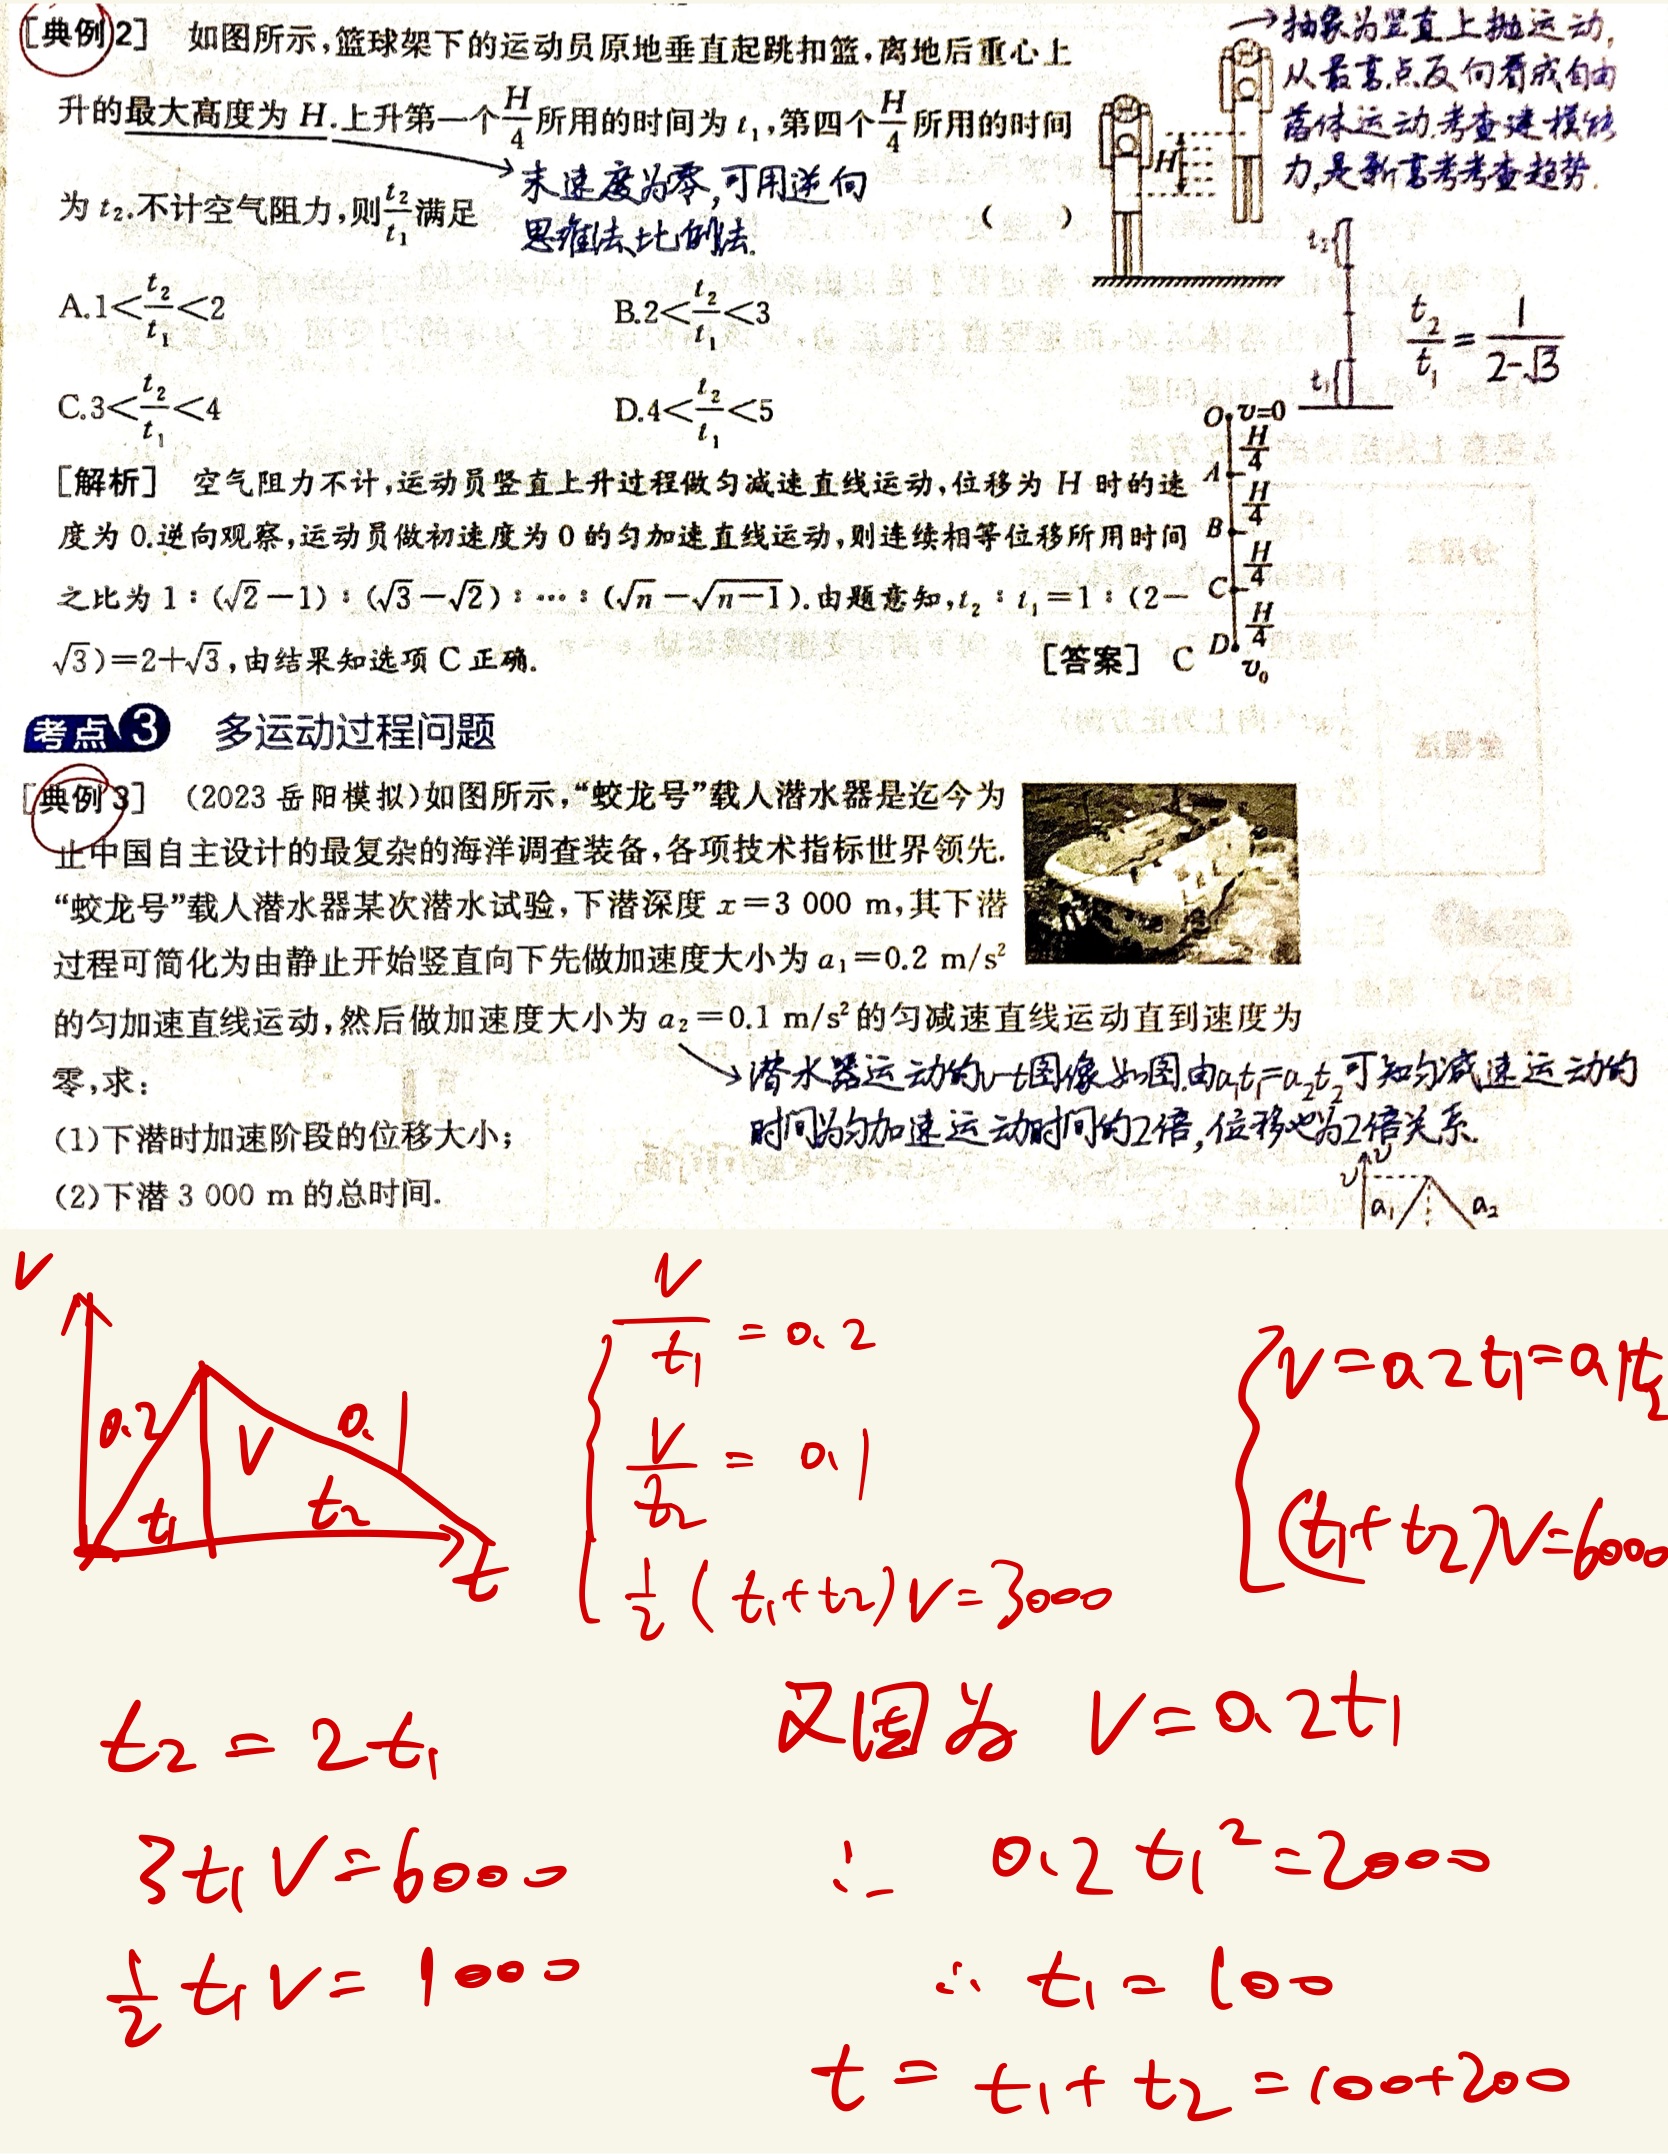 [典例2] 如图所示,篮球架下的运动员原地垂直起跳扣篮,离地后重心上
升的最大高度为 H.上升第一个H/4所用的时间为 t₁,第四个H/4所用的时间
为 t₂.不计空气阻力,则t₂/t₁满足 ( )
→抽象为竖直上抛运动,
从最高点反向看成自由
落体运动.考查建模能
力,是新高考考查趋势.
末速度为零,可用逆向
思维法、比例法.
H
A.1<t₂/t₁<2 B.2<t₂/t₁<3
C.3<t₂/t₁<4 D.4<t₂/t₁<5
t₂
t₁
t₂/t₁=1/(2-√3)
O v=0
H/4
A
H/4
B
H/4
C
H/4
D v₀
[解析] 空气阻力不计,运动员竖直上升过程做匀减速直线运动,位移为 H 时的速
度为 0.逆向观察,运动员做初速度为 0 的匀加速直线运动,则连续相等位移所用时间
之比为 1:(√2-1):(√3-√2):…:(√n-√(n-1)).由题意知,t₂:t₁=1:(2-
√3)=2+√3,由结果知选项 C 正确. [答案] C
考点3 多运动过程问题
[典例3] (2023 岳阳模拟)如图所示,“蛟龙号”载人潜水器是迄今为
止中国自主设计的最复杂的海洋调查装备,各项技术指标世界领先.
“蛟龙号”载人潜水器某次潜水试验,下潜深度 x=3 000 m,其下潜
过程可简化为由静止开始竖直向下先做加速度大小为 a₁=0.2 m/s²
的匀加速直线运动,然后做加速度大小为 a₂=0.1 m/s²的匀减速直线运动直到速度为
零,求:
潜水器运动的v-t图像如图.由a₁t₁=a₂t₂可知匀减速运动的
时间为匀加速运动时间的2倍,位移也为2倍关系.
(1)下潜时加速阶段的位移大小;
(2)下潜 3 000 m 的总时间.
v
v
a₁ a₂
V
0.2 V 0.1
t₁ t₂
t
V/t₁=0.2
V/t₂=0.1
½(t₁+t₂)V=3000
V=0.2t₁=0.1t₂
(t₁+t₂)V=6000
t₂=2t₁
3t₁V=6000
½t₁V=1000
又因为 V=0.2t₁
∴ 0.2t₁²=2000
∴ t₁=100
t=t₁+t₂=100+200